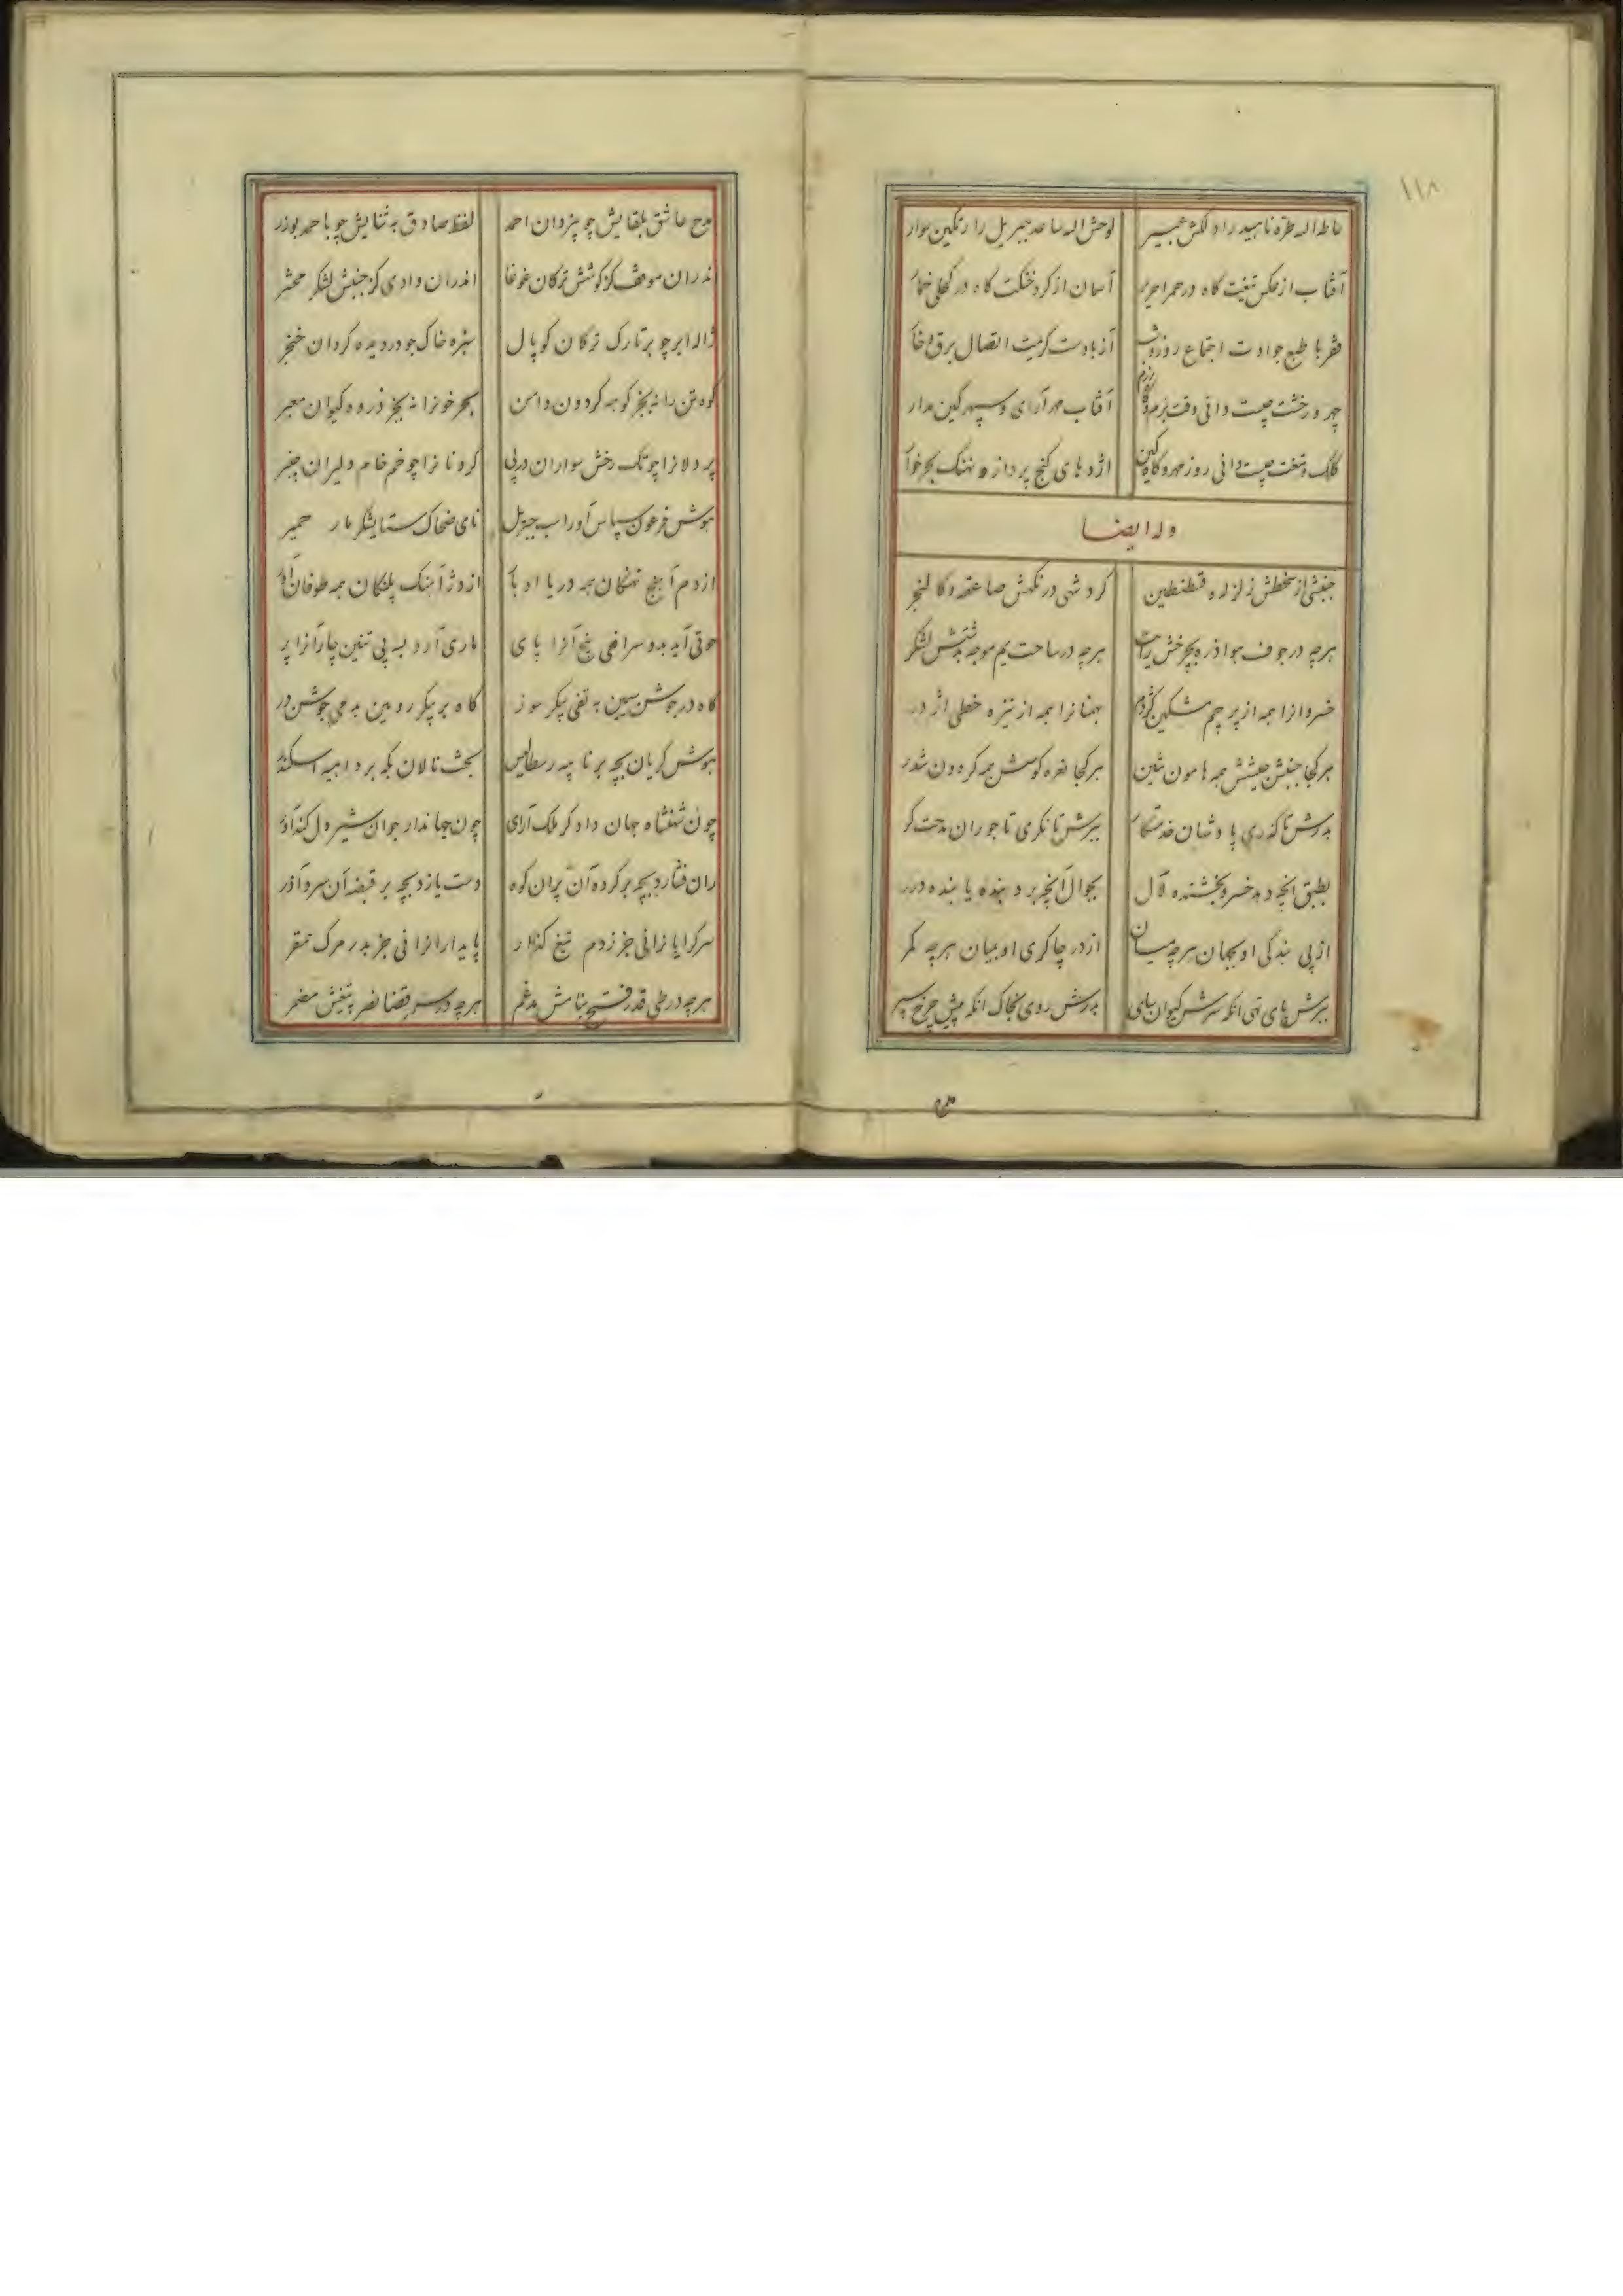 ۱۱۸
حاطه اله طره ناهید راه لکش عبیر لوحش اله ساعد جبریل را رنگین سوار
آفتاب از عکس تیغت گاه در حمرا حریر آسمان از کرد خنکت گاه در کحلی خمار
فقر با طبع جوادت اجتماع روز و شب
چهر و رخشت چیست دانی وقت بزم و گاه رزم آفتاب مهر آرای و سپهر کین مدار
کلک و تیغت چیست دانی روز مهر و گاه کین اژدهای گنج پرداز و نهنک بحر خوار
وله ایضا
جنبشی از سخطش زلزله و قسطنطین کردشی در نگهش صاعقه و کالنجر
هر چه در جوف هوا ذره بچرخش رایت هر چه در ساحت یم موجه بدشتش لشکر
خسروانرا همه از پرچم مشکین کژدم بهمنانرا همه از نیزه خطی اژدر
هر کجا جنبش جیشش همه هامون شین هر کجا نعره کوسش همه کردون شدر
بدرش تا گذری پادشهان خدمتکار ببرش تا نگری تاجوران مدحت گر
بطبق آنچه دهد خسرو بخشنده لآل بجوال آنچه برد بنده یابنده درر
از پی بندگی او بجهان هر چه میان از در چاکری او بمیان هر چه کمر
ببرش پای تهی آنکه سرش کیوان سای بدرش روی بخاک آنکه
مدح
مدح عاشق بلقایش چو بیزدان احمد لفظ صادق به ثنایش چو باحمد بوذر
اندران موقف کز کوشش ترکان غوغا اندران وادی کز جنبش لشکر محشر
ژاله ابر چو بر تارک ترکان کوپال سبزه خاک چو در دیده کردان خنجر
کوه تن را نه بجز کوهه کردون دامن بحر خونرا نه بجز ذروه کیوان معبر
پردلانرا چو تک رخش سواران در پی کردنانرا چو خم خام دلیران چنبر
هوش فرعون سپاس آور اب جبریل نای ضحاک ستایشگر مار حمیر
از دم آهنج نهنکان همه دریا اوبار از دژ آهنک پلنکان همه طوفان
حوتی آید بدو سر افعی پنج آنرا پای ماری آرد بسه پی تنین چار آنرا پر
گاه در جوشن سیمین به تفی پیکر سوز گاه بر پیکر رویین بدمی جوشن در
هوش گریان بچه بر نامیه رسطالیس بخت نالان بکه بر داهیه اسکندر
چون شهنشاه جهان دادگر ملک آرای چون جهاندار جوان شیر دل کندآور
ران فشارد بچه بر کرده آن پران کوه دست یازد بچه بر قبضه آن سرو آذر
سرگرایانرا نی جز ز دم تیغ گذار پایدارانرا نی جز بدر مرک مقر
هر چه در طی قدر فتح بنامش مدغم هر چه در سر قضا نصر به تیغش مضمر